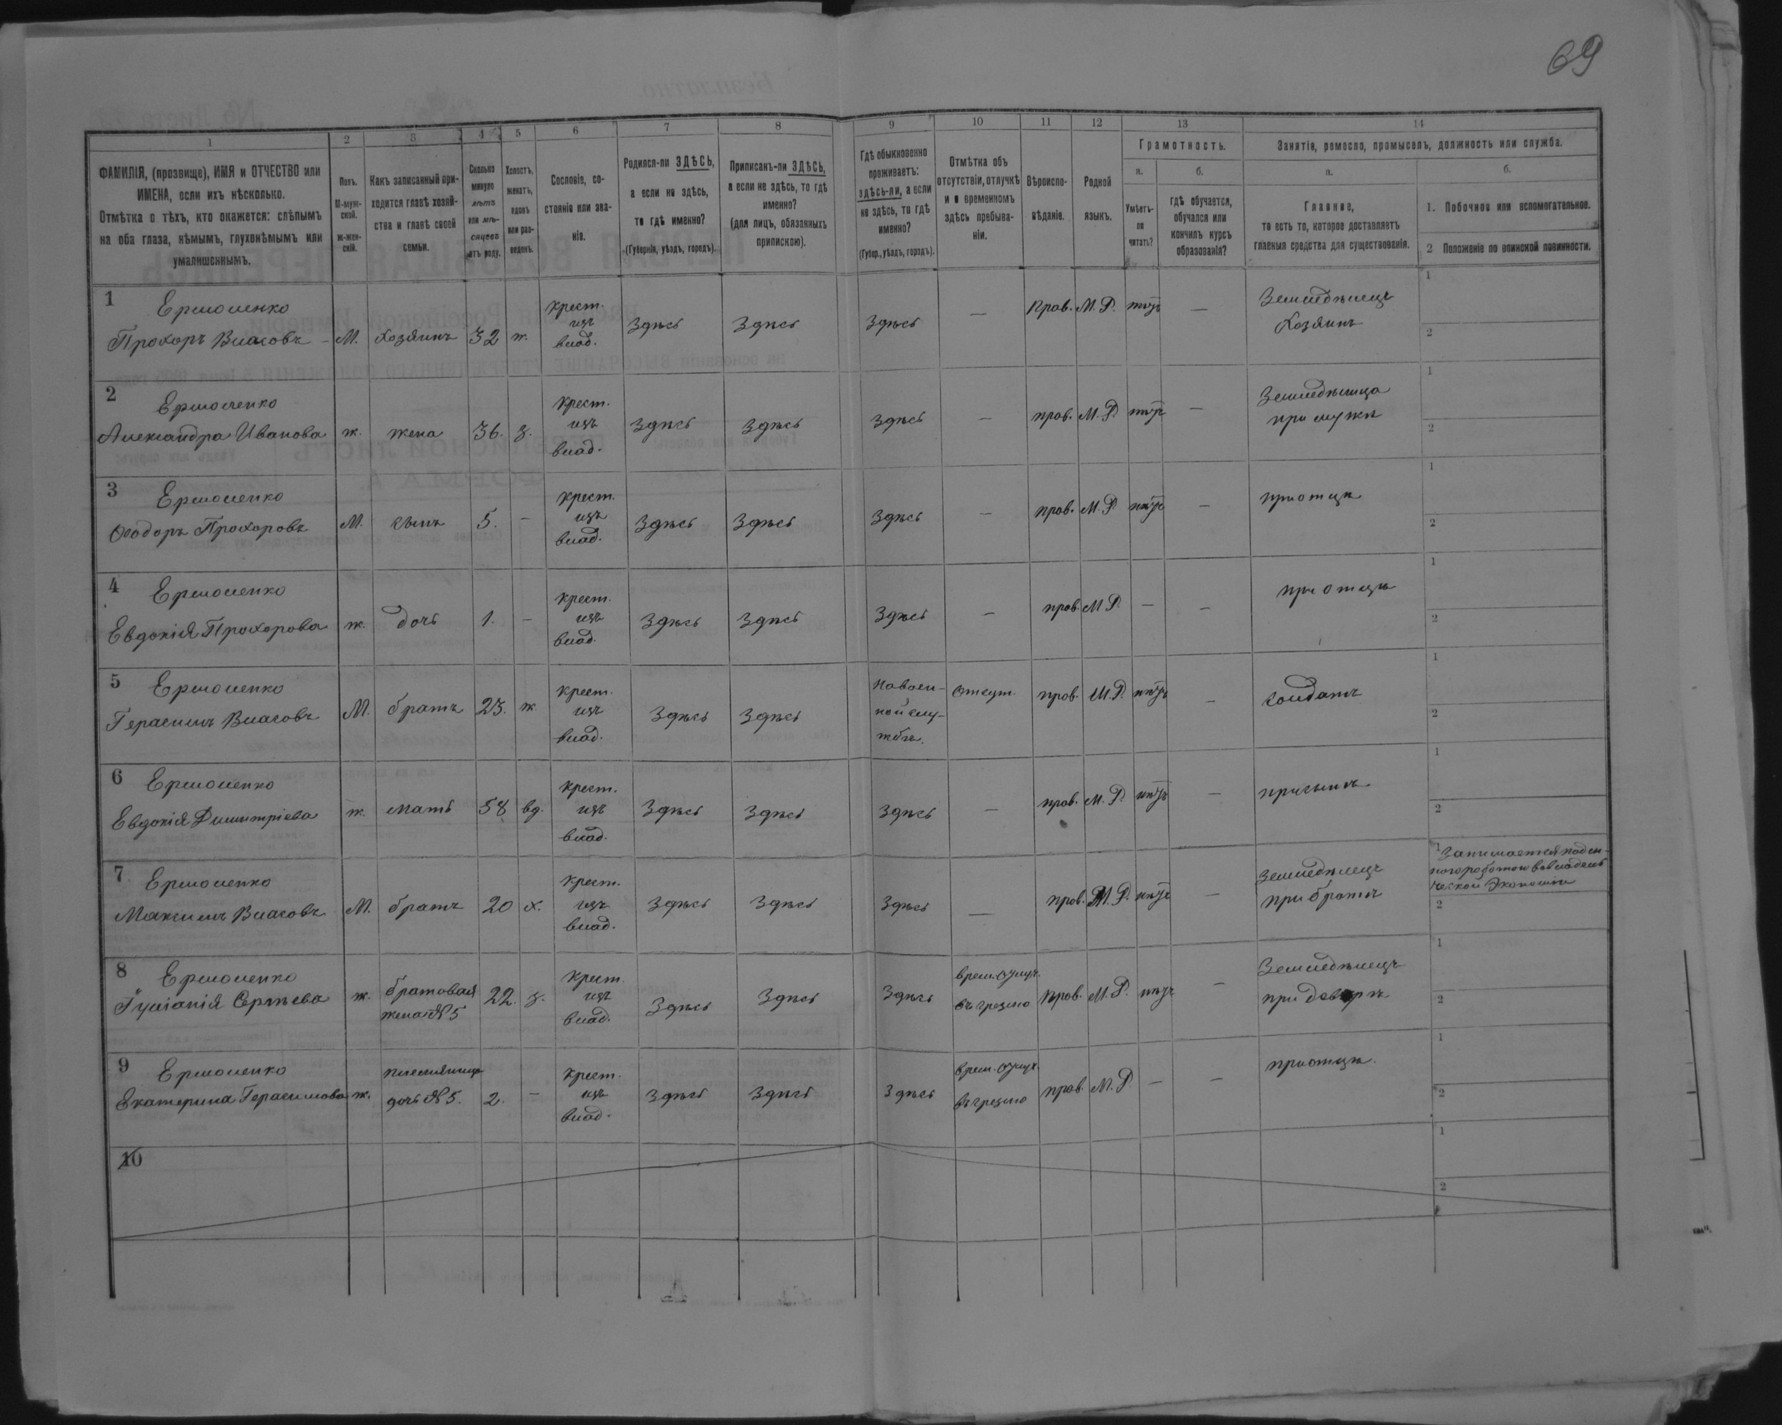 69
1 2 3 4 5 6 7 8 9 10 11 12 13 14
ФАМИЛІЯ, (прозвище), ИМЯ и ОТЧЕСТВО или
ИМЕНА, если ихъ нѣсколько.
Отмѣтка о тѣхъ, кто окажется: слѣпымъ
на оба глаза, нѣмымъ, глухонѣмымъ или
умалишеннымъ.
Полъ.
М-муж-
ской.
ж-жен-
скій.
Какъ записанный при-
ходится главѣ хозяй-
ства и главѣ своей
семьи.
Сколько
минуло
лѣтъ
или мѣ-
сяцевъ
отъ роду.
Холостъ,
женатъ,
вдовъ
или раз-
веденъ.
Сословіе, со-
стояніе или зва-
ніе.
Родился-ли ЗДѢСЬ,
а если не здѣсь,
то гдѣ именно?
(Губернія, уѣздъ, городъ).
Приписанъ-ли ЗДѢСЬ,
а если не здѣсь, то гдѣ
именно?
(для лицъ, обязанныхъ
припискою).
Гдѣ обыкновенно
проживаетъ:
здѣсь-ли, а если
не здѣсь, то гдѣ
именно?
(Губер., уѣздъ, городъ).
Отмѣтка объ
отсутствіи, отлучкѣ
и о временномъ
здѣсь пребыва-
ніи.
Вѣроиспо-
вѣданіе.
Родной
языкъ.
Грамотность.
а.
Умѣетъ-
ли
читать?
б.
гдѣ обучается,
обучался или
кончилъ курсъ
образованія?
Занятіе, ремесло, промыселъ, должность или служба.
а.
Главное,
то есть то, которое доставляетъ
главныя средства для существованія.
б.
1. Побочное или вспомогательное.
2 Положеніе по воинской повинности.
1 Ермоленко
Прохоръ Власовъ – М. хозяинъ 32 ж. крест. изъ влад. Здѣсь Здѣсь Здѣсь — прав. М.Р. — Земледѣлецъ
Хозяинъ
1
2
2 Ермоленко
Александра Иванова ж. жена 36. з. крест. изъ влад. Здѣсь Здѣсь Здѣсь — прав. М.Р. — Земледѣлица
при мужѣ
1
2
3 Ермоленко
Ѳеодоръ Прохоровъ М. сынъ 5. – крест. изъ влад. Здѣсь Здѣсь Здѣсь — прав. М.Р. — при отцѣ
1
2
4 Ермоленко
Евдокія Прохорова ж. дочь 1. – крест. изъ влад. Здѣсь Здѣсь Здѣсь — прав. М.Р. — — при отцѣ
1
2
5 Ермоленко
Герасимъ Власовъ М. братъ 25. ж крест. изъ влад. Здѣсь Здѣсь На воен- ной слу- жбѣ. отсут. прав. М.Р. — солдатъ
1
2
6 Ермоленко
Евдокія Димитріева ж. мать 58 вд. крест. изъ влад. Здѣсь Здѣсь Здѣсь — прав. М.Р. — при сынѣ
1
2
7 Ермоленко
Максимъ Власовъ М. братъ 20 х. крест. изъ влад. Здѣсь Здѣсь Здѣсь — прав. М.Р. — Земледѣлецъ
при братѣ
1 Занимается поден-
ною работою
Экономіи
2
8 Ермоленко
Іуліанія Сергѣева ж. братовая жена №5 22. з. крест. изъ влад. Здѣсь Здѣсь Здѣсь прав. М.Р. — Земледѣлецъ
при
1
2
9 Ермоленко
Екатерина Герасимова ж. племянница дочь №5. 2. – крест. изъ влад. Здѣсь Здѣсь Здѣсь прав. М.Р. — — при отцѣ.
1
2
10
1
2